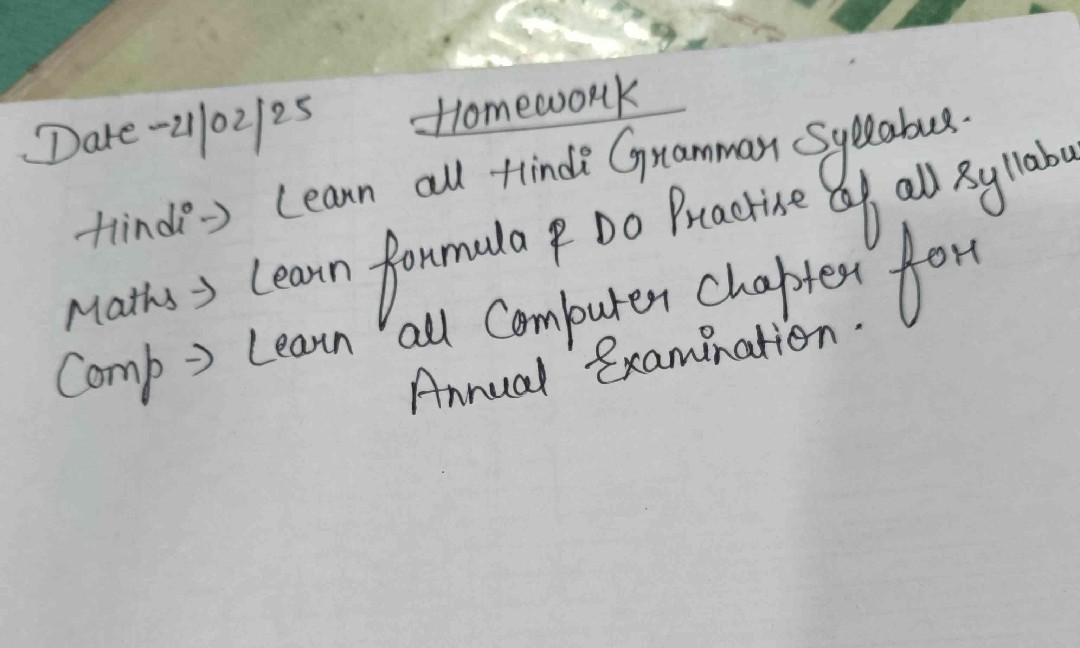 Date - 21/02/25 Homework
Hindi → Learn all Hindi Grammar Syllabus.
Maths → Learn formula & Do Practise of all syllabu
Comp → Learn all Computer Chapter for
Annual Examination.